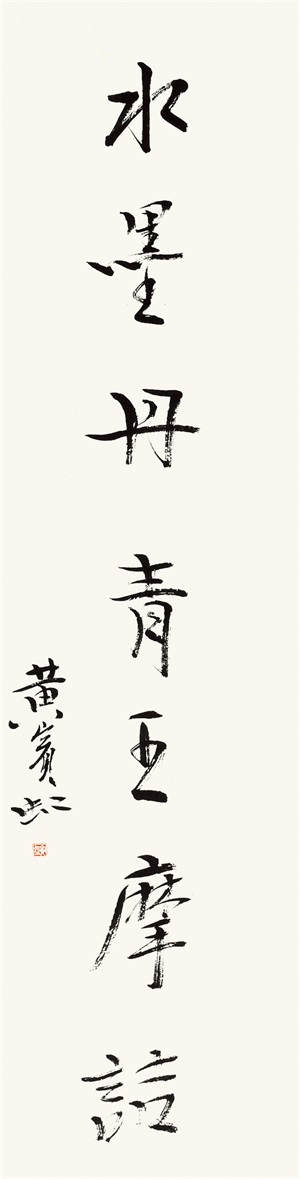 水墨丹青王摩詰
黃賓虹